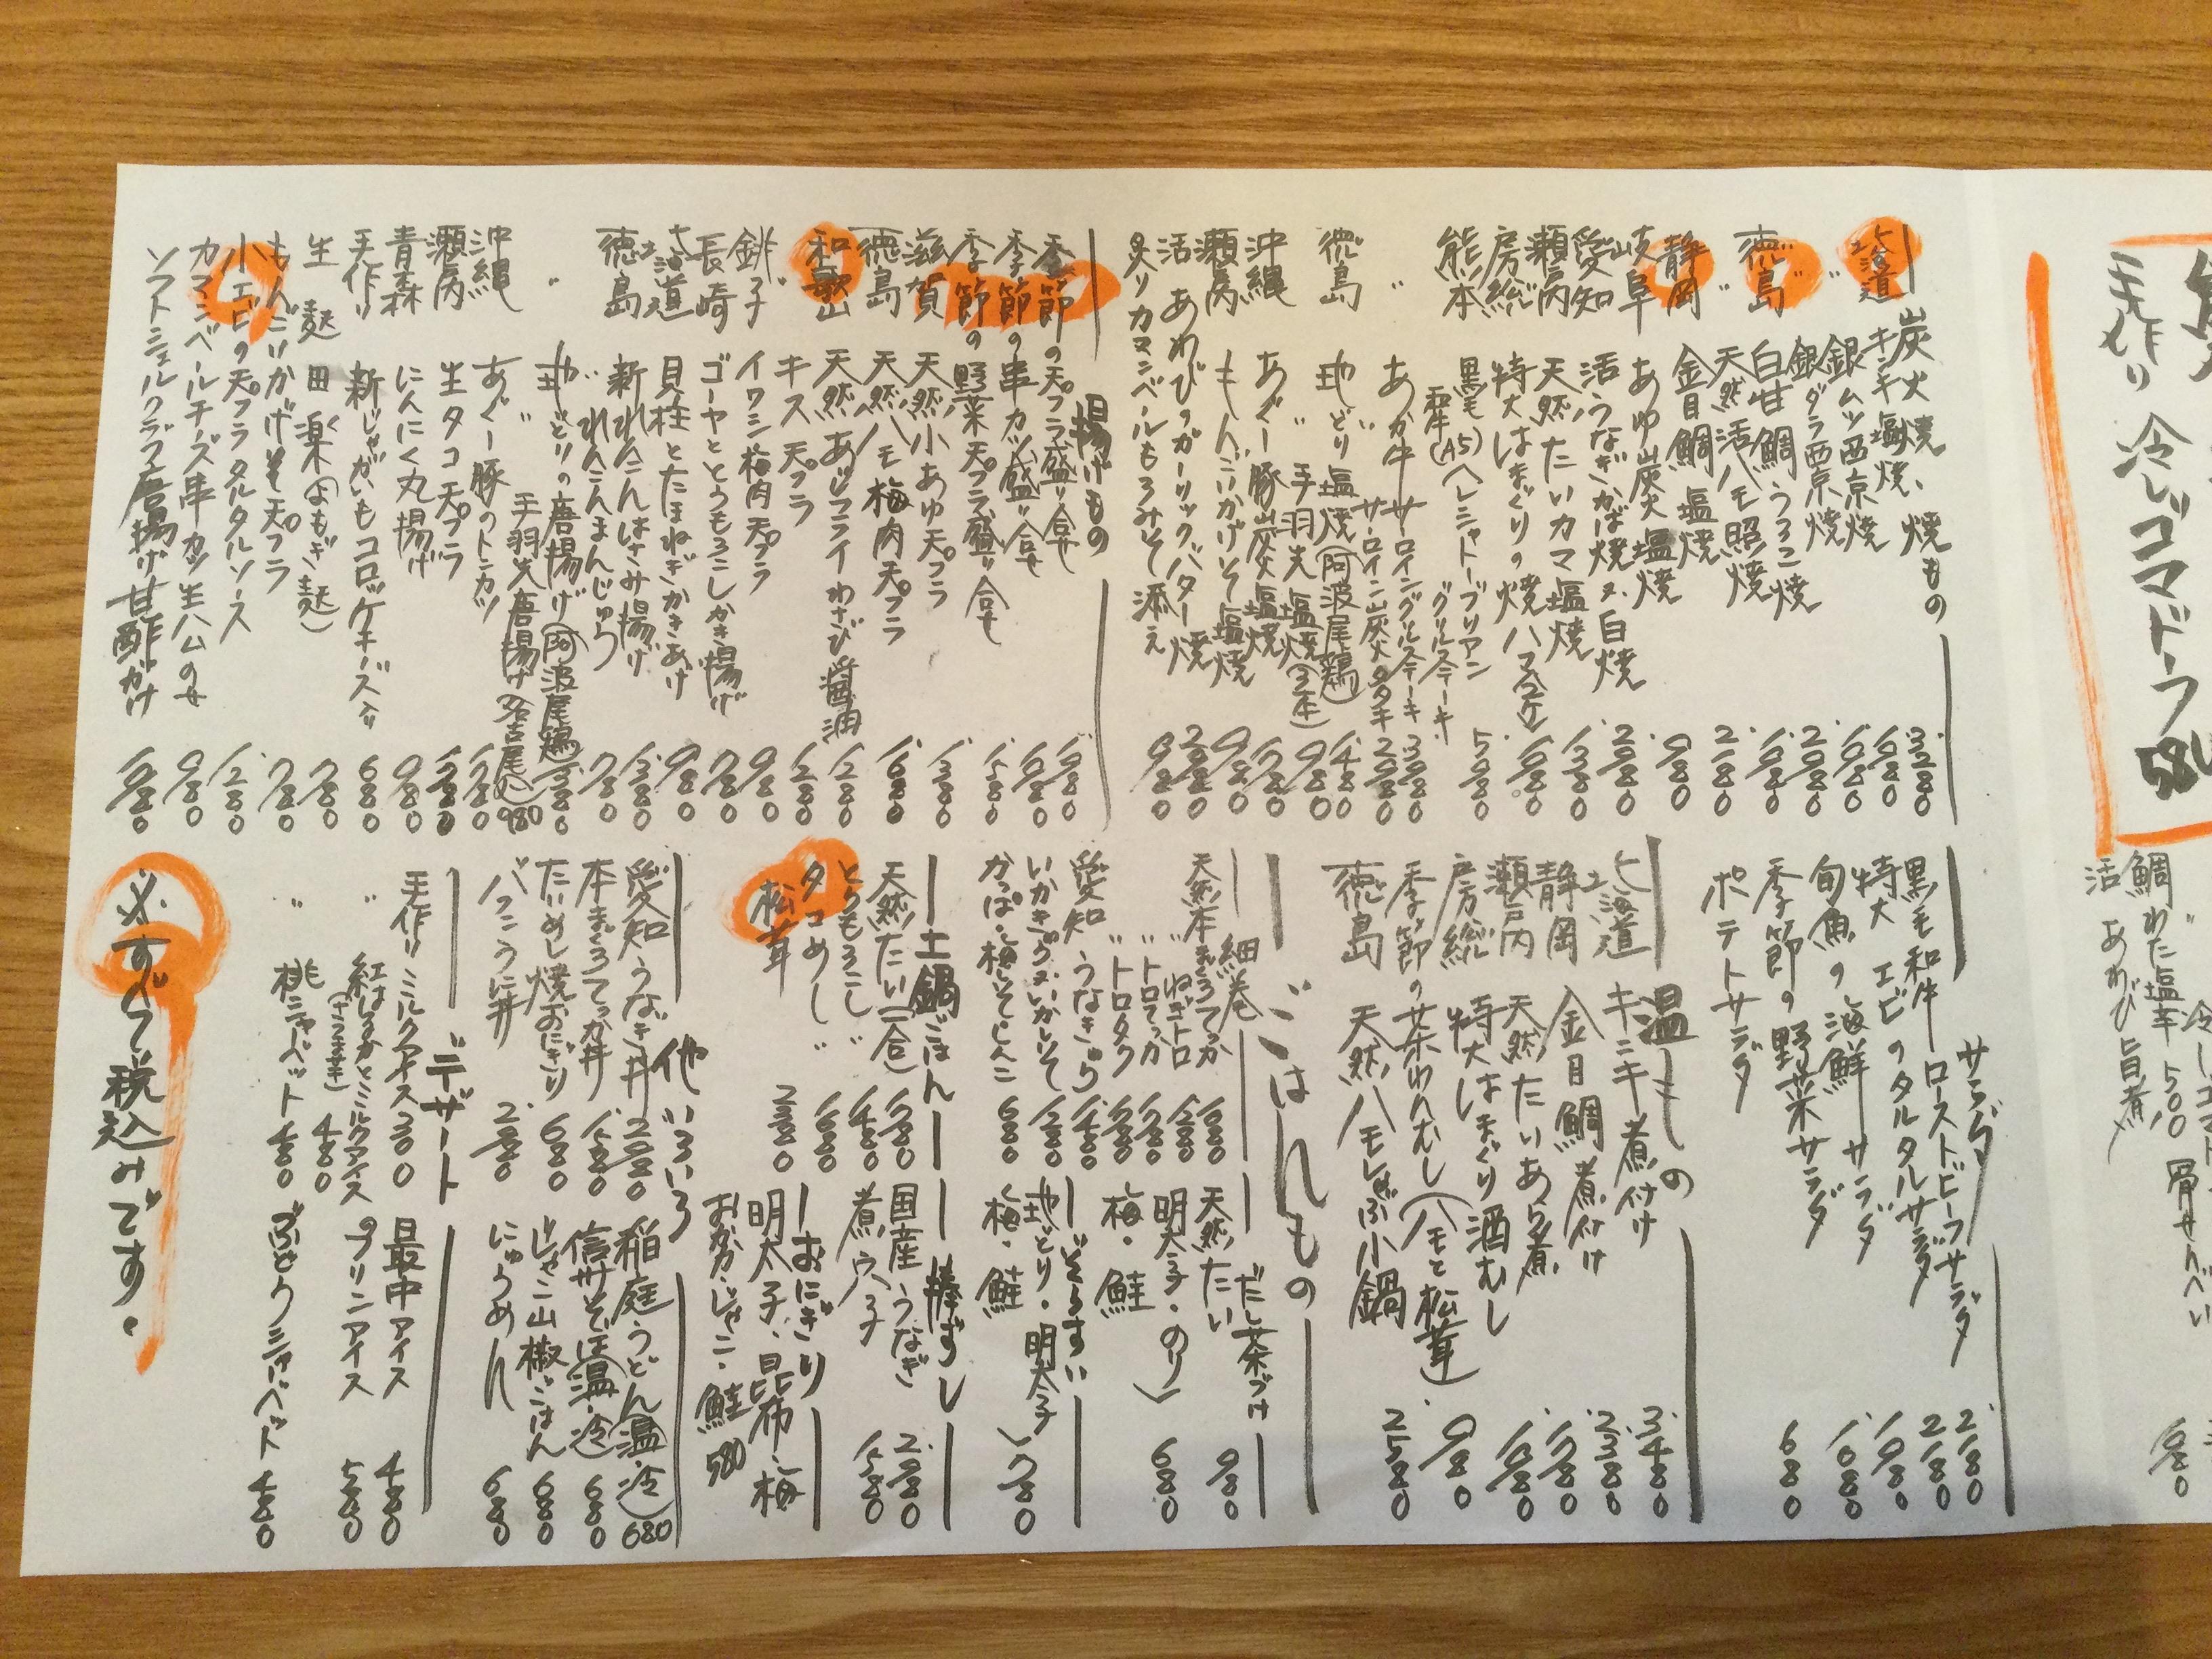 手作り 冷しゴマドーフ 580
鯛わた塩辛 500
骨せんべい
活 あわび旨煮
炭火焼、焼もの
北海道 キンキ塩焼 3280
〃 銀ムツ西京焼 1680
銀ダラ西京焼 1680
徳島 白甘鯛うろこ焼 2080
〃 天然活ハモ照焼 1680
静岡 金目鯛塩焼 2180
岐阜 あゆ炭火塩焼 980
愛知 活うなぎかば焼又白焼 2980
瀬戸内 天然たいカマ塩焼 1380
房総 特大はまぐりの焼ハマ(2ケ) 1080
熊本 黒毛和牛(A5)ヘレシャトーブリアングリルステーキ 5980
〃 あか牛サーロイングリルステーキ 3980
サーロイン炭火タタキ 2980
徳島 地どり塩焼(阿波尾鶏) 1480
〃 手羽先塩焼(3本) 980
沖縄 あぐー豚炭火塩焼 1780
瀬戸内 もんごいかげそ塩焼 980
活 あわびのガーリックバター焼 2980
炙りカマンベールもろみそ添え 980
揚げもの
季節の天プラ盛り合せ 1980
季節の串カツ盛り合せ 1680
季節の野菜天プラ盛り合せ 1580
滋賀 天然小あゆ天プラ 1380
徳島 天然ハモ梅肉天プラ 1680
和歌山 天然あじフライわさび醤油 1280
〃 キス天プラ 1280
銚子 イワシ梅肉天プラ 980
長崎 ゴーヤととうもろこしかき揚げ 780
北海道 貝柱とたまねぎかきあげ 980
徳島 新れんこんはさみ揚げ 1380
〃 れんこんまんじゅう 780
〃 地どりの唐揚げ(阿波尾鶏) 1380
〃 手羽先唐揚げ 980
沖縄 あぐー豚のトンカツ 1780
瀬戸内 生タコ天プラ 1280
青森 にんにく丸揚げ 980
手作り 新じゃがいもコロッケチーズ入り 680
生麩 田楽(よもぎ麩) 780
もんごいかげそ天プラ 780
小エビの天プラタルタルソース 1280
カマンベールチーズ串カツ生ハムのせ 980
ソフトシェルクラブ唐揚げ甘酢がけ 1080
サラダ
黒毛和牛ローストビーフサラダ 2180
特大エビのタルタルサラダ 2180
旬魚の海鮮サラダ 1980
季節の野菜サラダ 1080
ポテトサラダ 680
温もの
北海道 キンキ煮付け 3480
静岡 金目鯛煮付け 2380
瀬戸内 天然たいあら煮 1780
房総 特大はまぐり酒むし 1080
季節の茶わんむし(ハモと松茸) 980
徳島 天然ハモしゃぶ小鍋 2580
ごはんもの
細巻
天然本まぐろてっか 1680
〃 ねぎトロ 1280
〃 トロてっか 1780
〃 トロタク
愛知 うなきゅう 1480
いかきゅう・いかしそ 1280
かっぱ・梅しそ・しんこ 680
だし茶づけ
天然たい 980
明太子・のり
梅・鮭 680
ぞうすい
地どり・明太子
梅・鮭 780
土鍋ごはん
天然たい(一合) 1780
とうもろこし〃 1480
タコめし〃 1680
松茸 2980
棒ずし
国産うなぎ 2980
煮穴子 1580
おにぎり
明太子・昆布・梅
おかか・じゃこ・鮭 580
他いろいろ
愛知うなぎ丼 2980
本まぐろてっか丼 1580
たいめし焼おにぎり 680
バフンうに丼 2980
稲庭うどん(温・冷) 680
信州そば(温・冷) 680
じゃこ山椒ごはん 680
にゅうめん 680
デザート
手作りミルクアイス 300
〃 紅はるかとミルクアイス(さつま芋) 480
〃 桃シャーベット 480
最中アイス 480
プリンアイス 580
ぶどうシャーベット 480
※すべて税込みです。